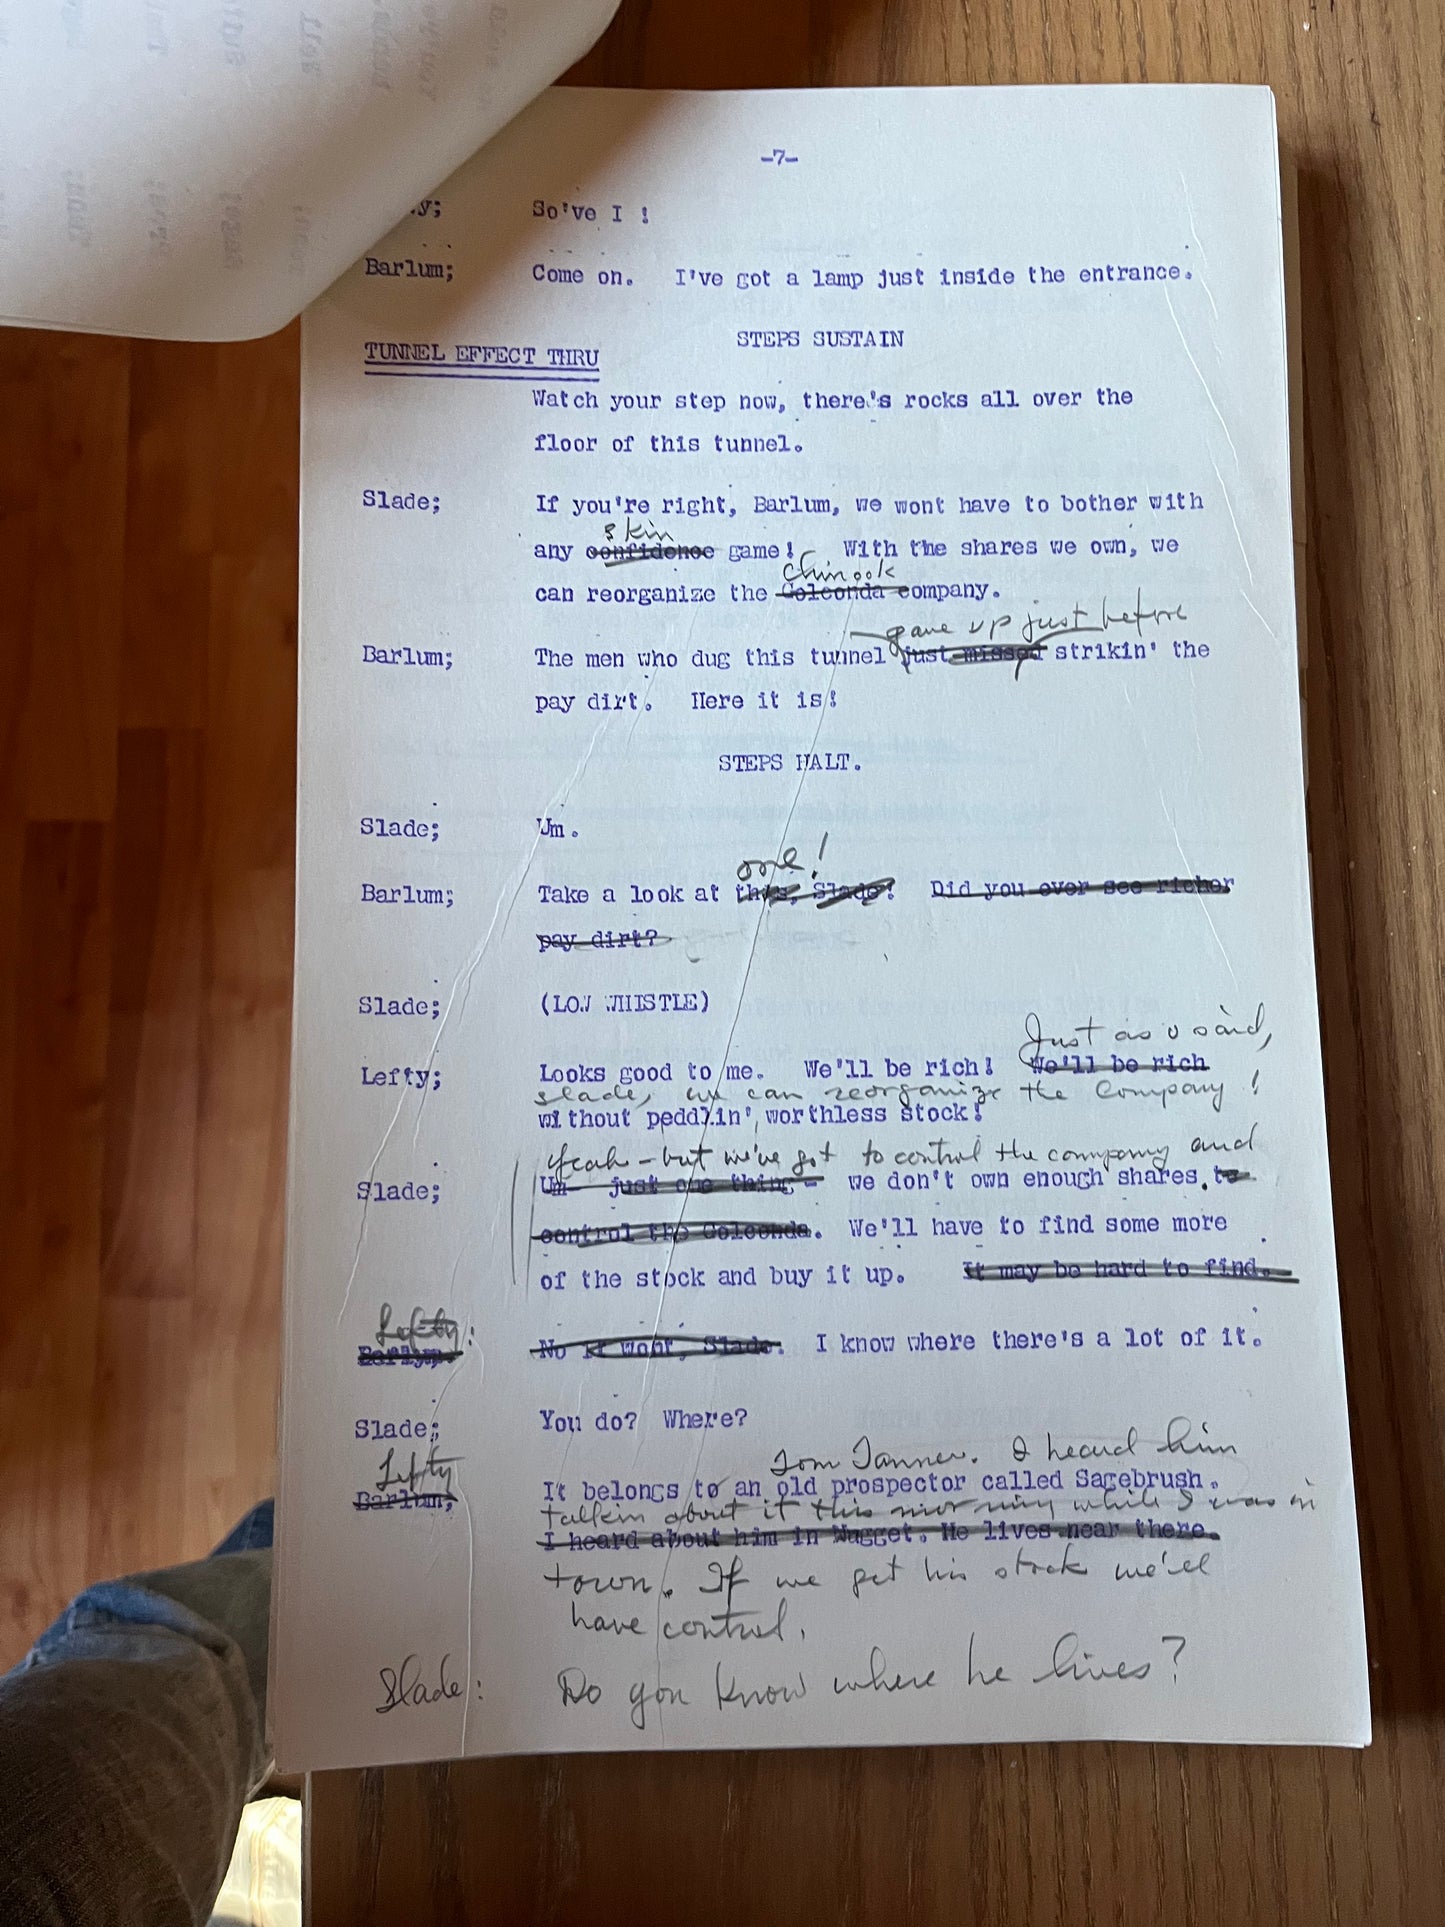 -7-
So've I !
Barlum; Come on. I've got a lamp just inside the entrance.
STEPS SUSTAIN
TUNNEL EFFECT THRU
Watch your step now, there's rocks all over the
floor of this tunnel.
Slade; If you're right, Barlum, we wont have to bother with
skin
any confidence game! With the shares we own, we
Chinook
can reorganize the Golconda company.
gave up just before
Barlum; The men who dug this tunnel just missed strikin' the
pay dirt. Here it is!
STEPS HALT.
Slade; Um.
one!
Barlum; Take a look at this, Slade! Did you ever see richer
pay dirt?
Slade; (LOW WHISTLE)
Just as u said,
Lefty; Looks good to me. We'll be rich! We'll be rich
Slade, we can reorganize the Company!
without peddlin' worthless stock!
Yeah - but we've got to control the company and
Slade; Um- just one thing - we don't own enough shares. to
control the Golconda. We'll have to find some more
of the stock and buy it up. It may be hard to find.
Lefty:
Barlum; No it wont, Slade. I know where there's a lot of it.
Slade; You do? Where?
Lefty Tom Tanner. I heard him
Barlum; It belongs to an old prospector called Sagebrush.
talkin about it this morning while I was in
I heard about him in Nugget. He lives near there.
town. If we get his stock we'll
have control.
Slade: Do you know where he lives?